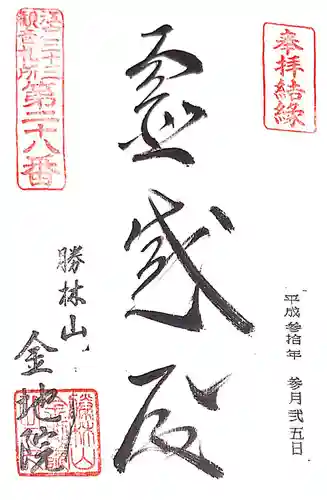 奉拝結縁
平成参拾年 参月弐五日
霊感殿
江戸三十三
観音札所第二十八番
勝林山
金地院